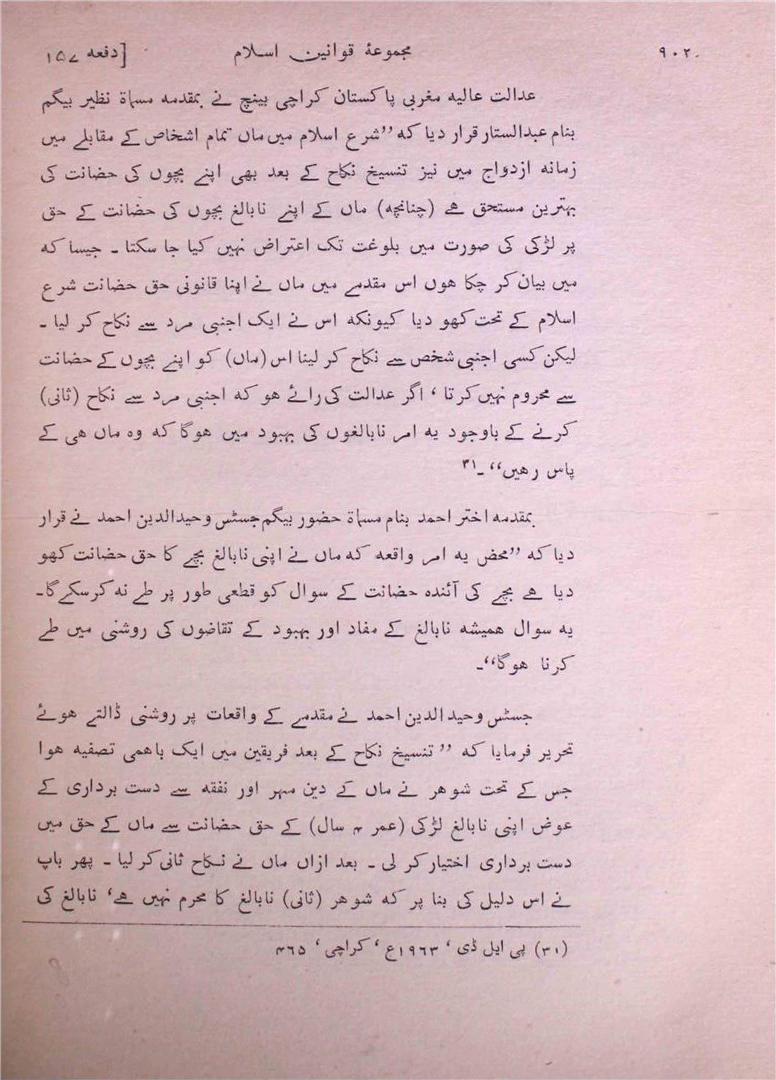 ۹۰۲
مجموعۂ قوانین اسلام
[دفعہ ۱۵۷
عدالت عالیہ مغربی پاکستان کراچی بینچ نے بمقدمہ مسماۃ نظیر بیگم
بنام عبدالستار قرار دیا کہ ”شرع اسلام میں ماں تمام اشخاص کے مقابلے میں
زمانہ ازدواج میں نیز تنسیخ نکاح کے بعد بھی اپنے بچوں کی حضانت کی
بہترین مستحق ہے (چنانچہ) ماں کے اپنے نابالغ بچوں کی حضانت کے حق
پر لڑکی کی صورت میں بلوغت تک اعتراض نہیں کیا جا سکتا ۔ جیسا کہ
میں بیان کر چکا ہوں اس مقدمے میں ماں نے اپنا قانونی حق حضانت شرع
اسلام کے تحت کھو دیا کیونکہ اس نے ایک اجنبی مرد سے نکاح کر لیا ۔
لیکن کسی اجنبی شخص سے نکاح کر لینا اس (ماں) کو اپنے بچوں کے حضانت
سے محروم نہیں کرتا ، اگر عدالت کی رائے ہو کہ اجنبی مرد سے نکاح (ثانی)
کرنے کے باوجود یہ امر نابالغوں کی بہبود میں ہوگا کہ وہ ماں ہی کے
پاس رہیں“ ۔۳۱
بمقدمہ اختر احمد بنام مسماۃ حضور بیگم جسٹس وحیدالدین احمد نے قرار
دیا کہ ”محض یہ امر واقعہ کہ ماں نے اپنی نابالغ بچے کا حق حضانت کھو
دیا ہے بچے کی آئندہ حضانت کے سوال کو قطعی طور پر طے نہ کرسکے گا۔
یہ سوال ہمیشہ نابالغ کے مفاد اور بہبود کے تقاضوں کی روشنی میں طے
کرنا ہوگا“۔
جسٹس وحیدالدین احمد نے مقدمے کے واقعات پر روشنی ڈالتے ہوئے
تحریر فرمایا کہ ”تنسیخ نکاح کے بعد فریقین میں ایک باہمی تصفیہ ہوا
جس کے تحت شوہر نے ماں کے دین مہر اور نفقہ سے دست برداری کے
عوض اپنی نابالغ لڑکی (عمر ۴ سال) کے حق حضانت سے ماں کے حق میں
دست برداری اختیار کر لی ۔ بعد ازاں ماں نے نکاح ثانی کر لیا ۔ پھر باپ
نے اس دلیل کی بنا پر کہ شوہر (ثانی) نابالغ کا محرم نہیں ہے، نابالغ کی
(۳۱) پی ایل ڈی ، ۱۹۶۳ع ، کراچی ، ۴۶۵